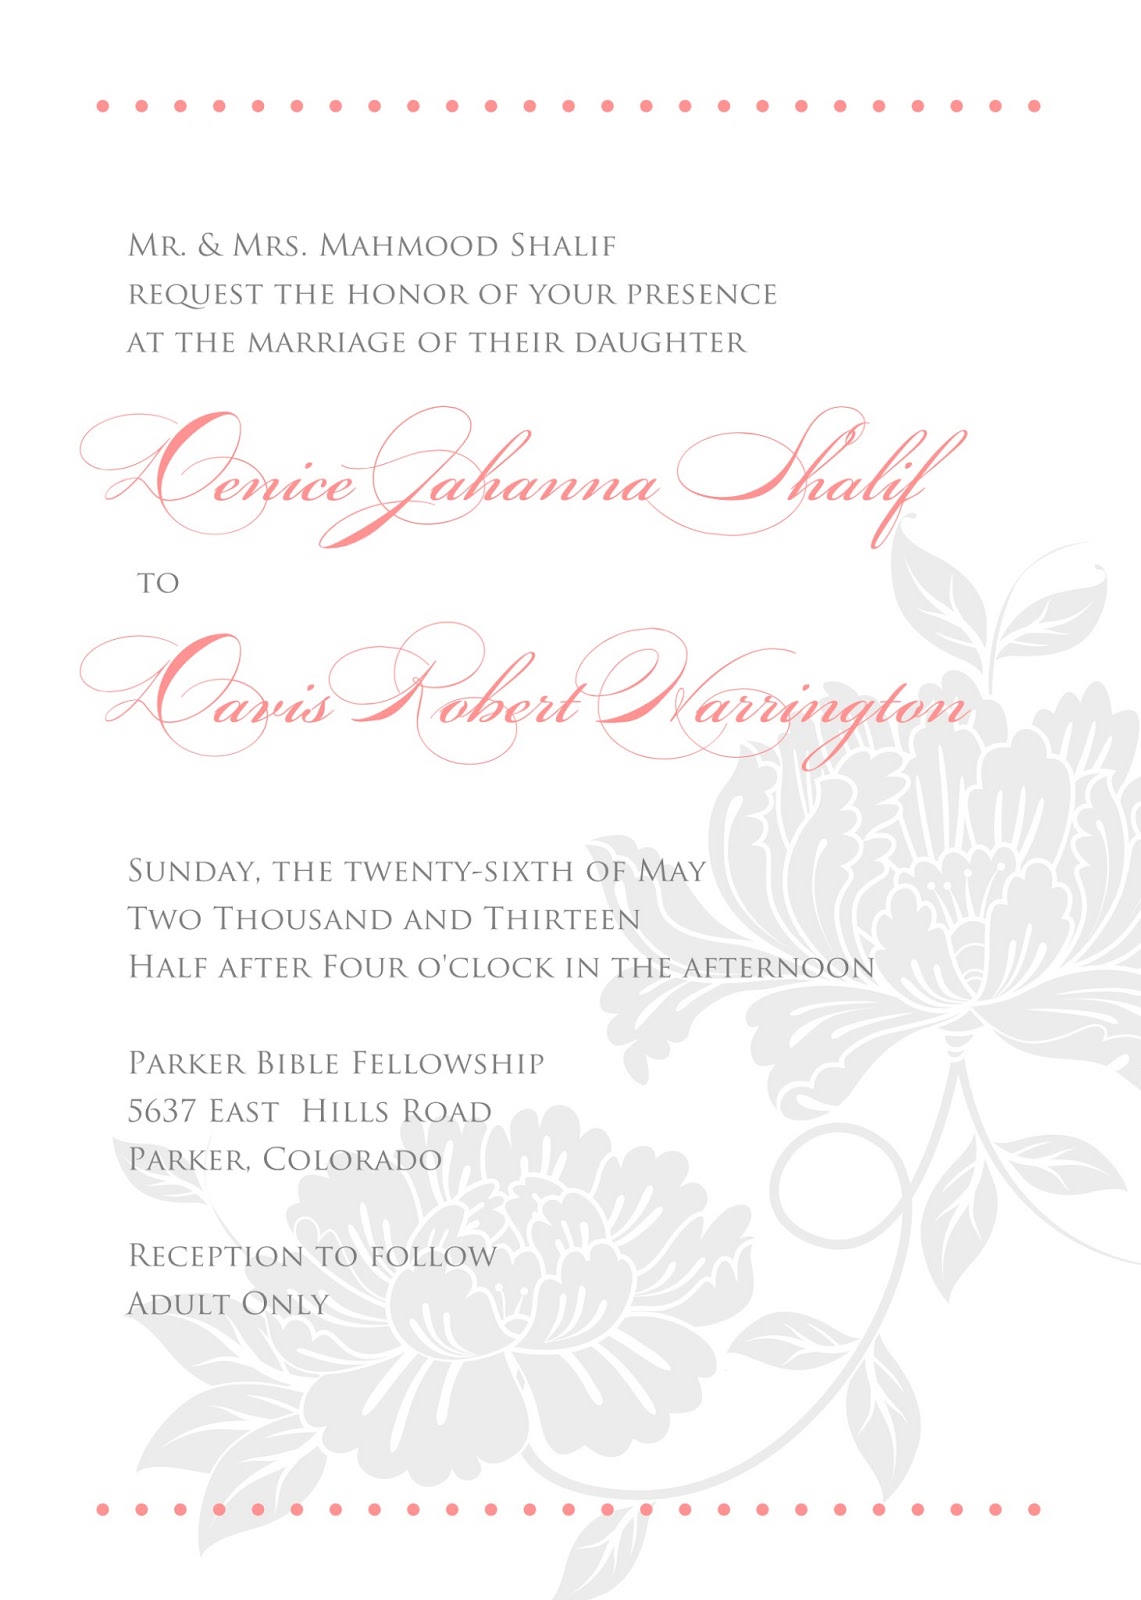 Mr. & Mrs. Mahmood Shalif
request the honor of your presence
at the marriage of their daughter
Denice Jahanna Shalif
to
Davis Robert Warrington
Sunday, the twenty-sixth of May
Two Thousand and Thirteen
Half after Four o'clock in the afternoon
Parker Bible Fellowship
5637 East Hills Road
Parker, Colorado
Reception to follow
Adult Only